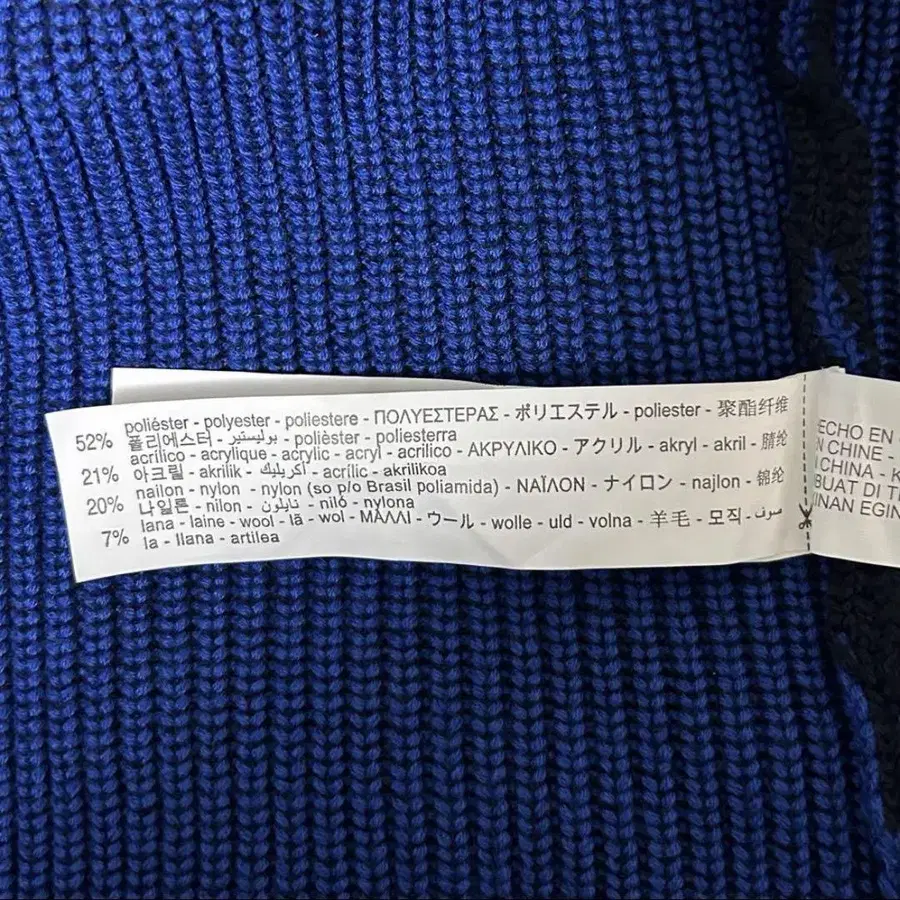 52% poliéster - polyester - poliestere - ΠΟΛΥΕΣΤΕΡΑΣ - ポリエステル - poliester - 聚酯纤维
폴리에스터 - بوليستير - polièster - poliesterra
21% acrílico - acrylique - acrylic - acryl - acrilico - ΑΚΡΥΛΙΚΟ - アクリル - akryl - akril - 腈纶
아크릴 - akrilik - أكريليك - acrílic - akrilikoa
20% nailon - nylon - nylon (so p/o Brasil poliamida) - ΝΑΪΛΟΝ - ナイロン - najlon - 锦纶
나일론 - nilon - نايلون - niló - nylona
7% lana - laine - wool - lã - wol - ΜΑΛΛΙ - ウール - wolle - uld - volna - 羊毛 - 모직 - صوف
la - llana - artilea
ECHO EN
N CHINE -
CHINA - K
BUAT DI T
INAN EGIN